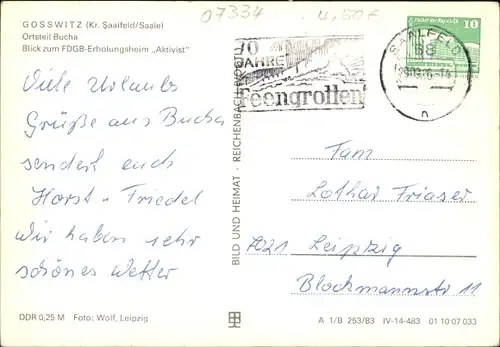 GOSSWITZ (Kr. Saalfeld/Saale)
Ortsteil Bucha
Blick zum FDGB-Erholungsheim „Aktivist"
07334
4,50 €
70
JAHRE
Feengrotten
SAALFELD
68
n
10
Viele Urlaubs
Grüße aus Bucha
sendert euch
Horst + Friedel
Wir haben sehr
schönes Wetter
BILD UND HEIMAT · REICHENBACH (VOGTL)
Fam
Lothar Friaser
7021 Leipzig
Blochmannstr 11
DDR 0,25 M Foto: Wolf, Leipzig
A 1/B 253/83 IV-14-483 01 10 07 033